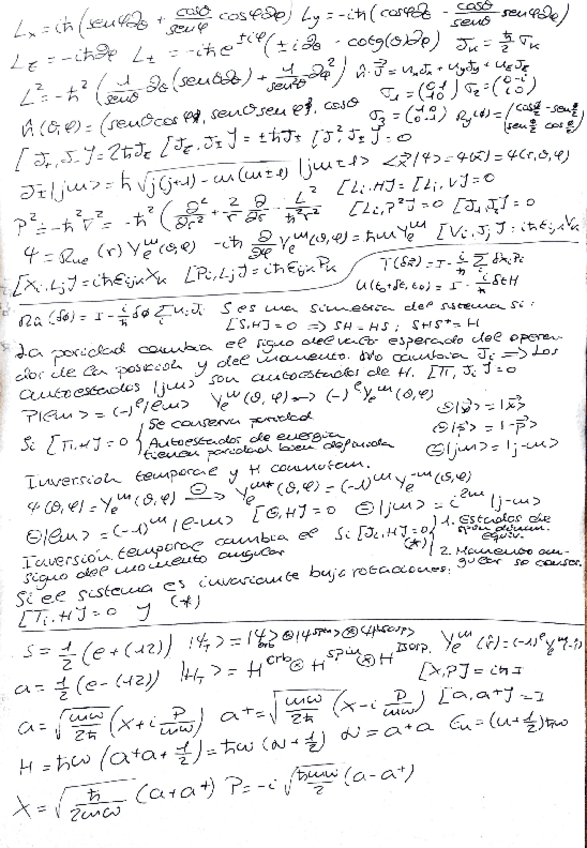 Lx = iħ(senφ∂θ + cosθ/senθ cosφ∂φ) Ly = -iħ(cosφ∂θ - cosθ/senθ senφ∂φ)
Lz = -iħ∂φ L± = -iħe^±iφ(±i∂θ - cotg(θ)∂φ) Jk = ħ/2 σk
L² = -ħ²(1/senθ ∂θ(senθ∂θ) + 1/sen²θ ∂φ²) n̂·J = nxJx + nyJy + nzJz
n̂(θ,φ) = (senθcosφ, senθsenφ, cosθ) σ1 = (0 1; 1 0) σ2 = (0 -i; i 0) σ3 = (1 0; 0 -1)
[J+, J-] = 2ħJz [Jz, J±] = ±ħJ± [J², J±] = 0
J±|jm> = ħ√(j(j+1) - m(m±1)) |jm±1> <x|Ψ> = Ψ(x) = Ψ(r,θ,φ)
P² = -ħ²∇² = -ħ²(∂²/∂r² + 2/r ∂/∂r - L²/ħ²r²) [Li, H] = [Li, V] = 0
[Li, P²] = 0
Ψ = Rne(r) Ye^m(θ,φ) -iħ ∂/∂φ Ye^m(θ,φ) = ħm Ye^m [Vi, Jj] = iħεijk Vk
[Xi, Lj] = iħεijk Xk [Pi, Lj] = iħεijk Pk
T(δx) = I - i/ħ Σ δxi Pi
U(t0+δt, t0) = I - i/ħ δtH
Rn̂(δθ) = I - i/ħ δθ Σ ni Ji S es una simetría del sistema si:
[S,H] = 0 => SH = HS; SHS⁺ = H
La paridad cambia el signo del valor esperado del operador
de la posición y del momento. No cambia Ji => Los
autoestados |jm> son autoestados de H. [Π, Ji] = 0
P|em> = (-)^e|em> Ye^m(θ,φ) -> (-)^e Ye^m(θ,φ)
Si [Π,H] = 0 { Se conserva paridad
Autoestados de energía
tienen paridad bien definida
Θ|x> = |x>
Θ|p> = |-p>
Θ|jm> = |j-m>
Inversión temporal y H conmutan.
Ψ(θ,φ) = Ye^m(θ,φ) -Θ-> Ye^m*(θ,φ) = (-1)^m Ye^-m(θ,φ)
Θ|em> = (-1)^m |e-m> [Θ,H] = 0 Θ|jm> = i^2m |j-m>
Inversión temporal cambia el
signo del momento angular
Si [Ji,H] = 0 (*) { 1. Estados de
equiv.
2. Momento angular se conser.
Si el sistema es invariante bajo rotaciones:
[Ti,H] = 0 y (*)
S = 1/2 (e + (12))
a = 1/2 (e - (12)) |HT> = H^orb ⊗ H^spin ⊗ H^isosp.
[X,P] = iħI
a = √(mω/2ħ) (X + i P/mω) a⁺ = √(mω/2ħ) (X - i P/mω) [a,a⁺] = I
H = ħω(a⁺a + 1/2) = ħω(N + 1/2) N = a⁺a En = (n + 1/2)ħω
X = √(ħ/2mω) (a + a⁺) P = -i √(ħmω/2) (a - a⁺)